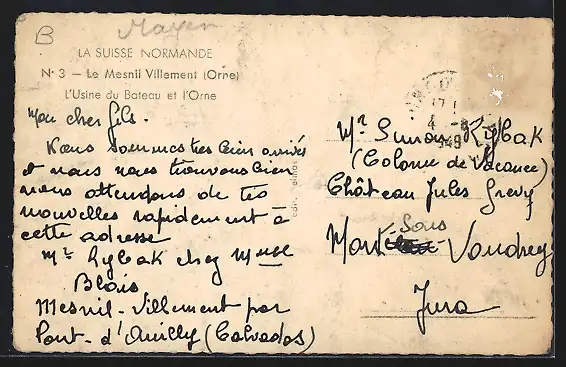 B
Mayen
LA SUISSE NORMANDE
N° 3 — Le Mesnil Villement (Orne)
L'Usine du Bateau et l'Orne
Mon cher fils.
Nous sommes très bien arrivés
et nous nous trouvons bien
nous attendons de tes
nouvelles rapidement à
cette adresse
Mr Rybak chez Mme
Blais
Mesnil-Villement par
Pont-d'Ouilly (Calvados)
17
4 - 8
1949
Mr Simon Rybak
(Colonie de Vacance)
Château Jules Grevy
Mont Sous Vaudrey
Jura